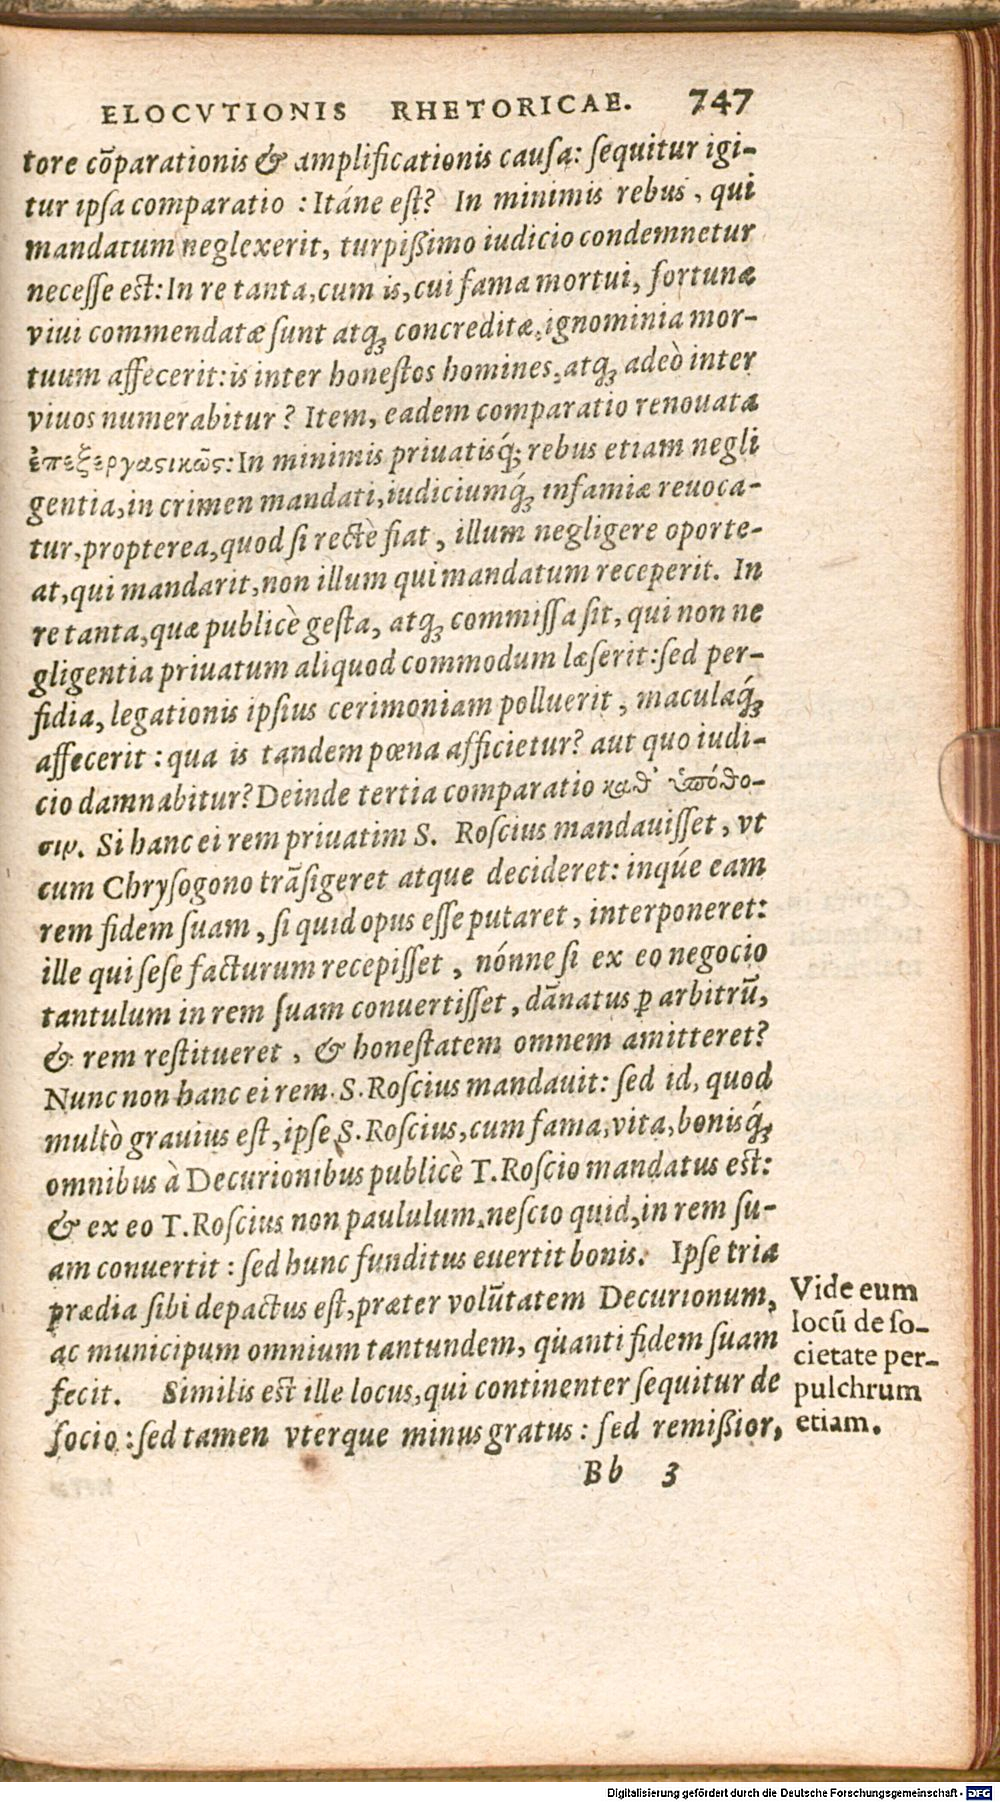 ELOCVTIONIS RHETORICAE. 747
tore cōparationis & amplificationis causa: sequitur igi-
tur ipsa comparatio : Itáne est? In minimis rebus, qui
mandatum neglexerit, turpißimo iudicio condemnetur
necesse est: In re tanta, cum is, cui fama mortui, fortunæ
viui commendatæ sunt atq; concreditæ, ignominia mor-
tuum affecerit: is inter honestos homines, atq; adeò inter
viuos numerabitur? Item, eadem comparatio renouata
ἐπεξεργαςικῶς: In minimis priuatisq́; rebus etiam negli
gentia, in crimen mandati, iudiciumq́; infamiæ reuoca-
tur, propterea, quod si rectè fiat, illum negligere oporte-
at, qui mandarit, non illum qui mandatum receperit. In
re tanta, quæ publicè gesta, atq; commissa sit, qui non ne
gligentia priuatum aliquod commodum læserit: sed per-
fidia, legationis ipsius cerimoniam polluerit, maculaq́;
affecerit: qua is tandem pœna afficietur? aut quo iudi-
cio damnabitur? Deinde tertia comparatio καθ’ ὑπόθε-
σιν. Si hanc ei rem priuatim S. Roscius mandauisset, vt
cum Chrysogono trāsigeret atque decideret: inq́ue eam
rem fidem suam, si quid opus esse putaret, interponeret:
ille qui sese facturum recepisset, nónne si ex eo negocio
tantulum in rem suam conuertisset, dānatus ꝑ arbitrū,
& rem restitueret, & honestatem omnem amitteret?
Nunc non hanc ei rem S. Roscius mandauit: sed id, quod
multò grauius est, ipse S. Roscius, cum fama, vita, bonisq́;
omnibus à Decurionibus publicè T. Roscio mandatus est:
& ex eo T. Roscius non paululum nescio quid, in rem su-
am conuertit: sed hunc funditus euertit bonis. Ipse tria
prædia sibi depactus est, præter volūtatem Decurionum,
ac municipum omnium tantundem, quanti fidem suam
fecit. Similis est ille locus, qui continenter sequitur de
socio: sed tamen vterque minus gratus: sed remißior,
Vide eum
locū de so-
cietate per-
pulchrum
etiam.
Bb 3
Digitalisierung gefördert durch die Deutsche Forschungsgemeinschaft - DFG